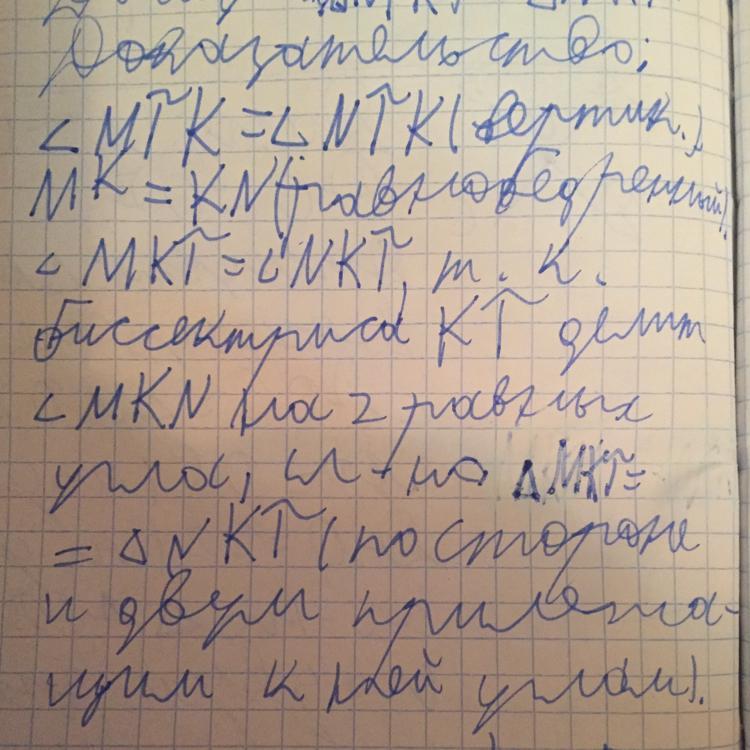 △MKT △NKT
Доказательство:
∠MTK=∠NTK(вертик.)
MK=KN(равнобедренный).
∠MKT=∠NKT, т. к.
биссектриса KT делит
∠MKN на 2 равных
угла, сл-но △MKT=
=△NKT (по стороне
и двум прилежа-
щим к ней углам).